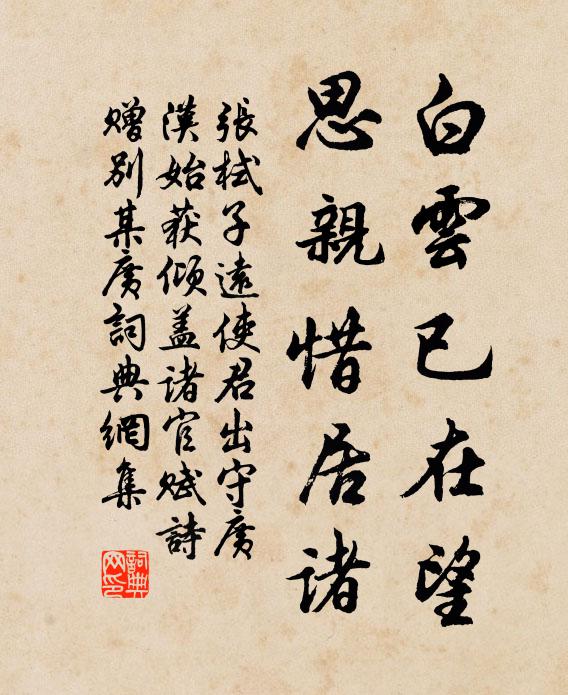 白雲已在望
思親惜居諸
張栻子遠使君出守廣
漢始获傾蓋诸官賦詩
贈别某廣詞典網集
詞典
网印